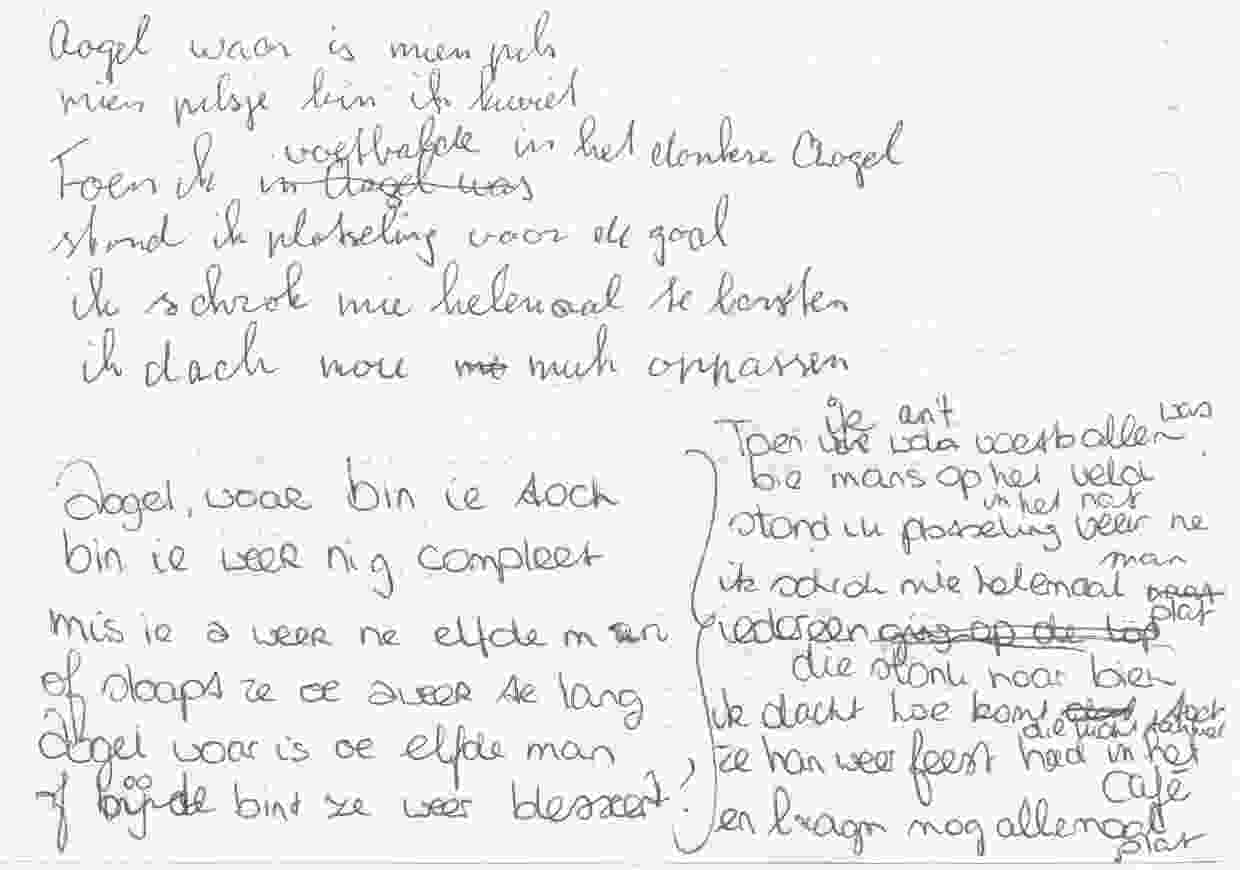 Aogel waar is mien pils
mien pilsje bin ik kwiet
Toen ik voetbalde in het donkere Aogel
in Aogel was
stond ik plotseling voor de goal
ik schrok mie helemaal te barsten
ik dach nou muk oppassen
Aogel, waar bin ie toch
bin ie weer nig compleet
mis ie a weer ne elfde man
of slaapt ze oe a weer te lang
Aogel waar is oe elfde man
of bint ze weer blesseert?
Toen ik an't voetballen was
bie mans op het veld
in het nat
stond ik plotseling veur ne man
ik schrok mie helemaal plat
iedereen ging op de lop
die stonk naar bier
ik dacht hoe komt toch
die lucht
ze han weer feest had in het
Café
en lragn nog allemaal
plat